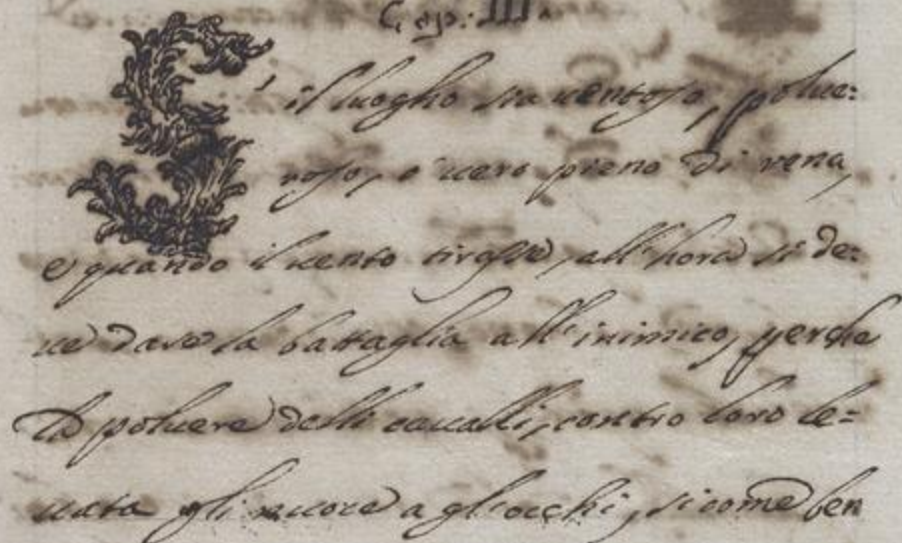 Cap: III.
S' il luogho sia uentoso, polue:
roso, o' uero pieno di rena,
e quando il uento tirasse, all'hora si de:
ue dare la battaglia all'inimico, perche
la poluere delli caualli, contro loro le=
uata gli nuoce a gl'occhi, si come ben